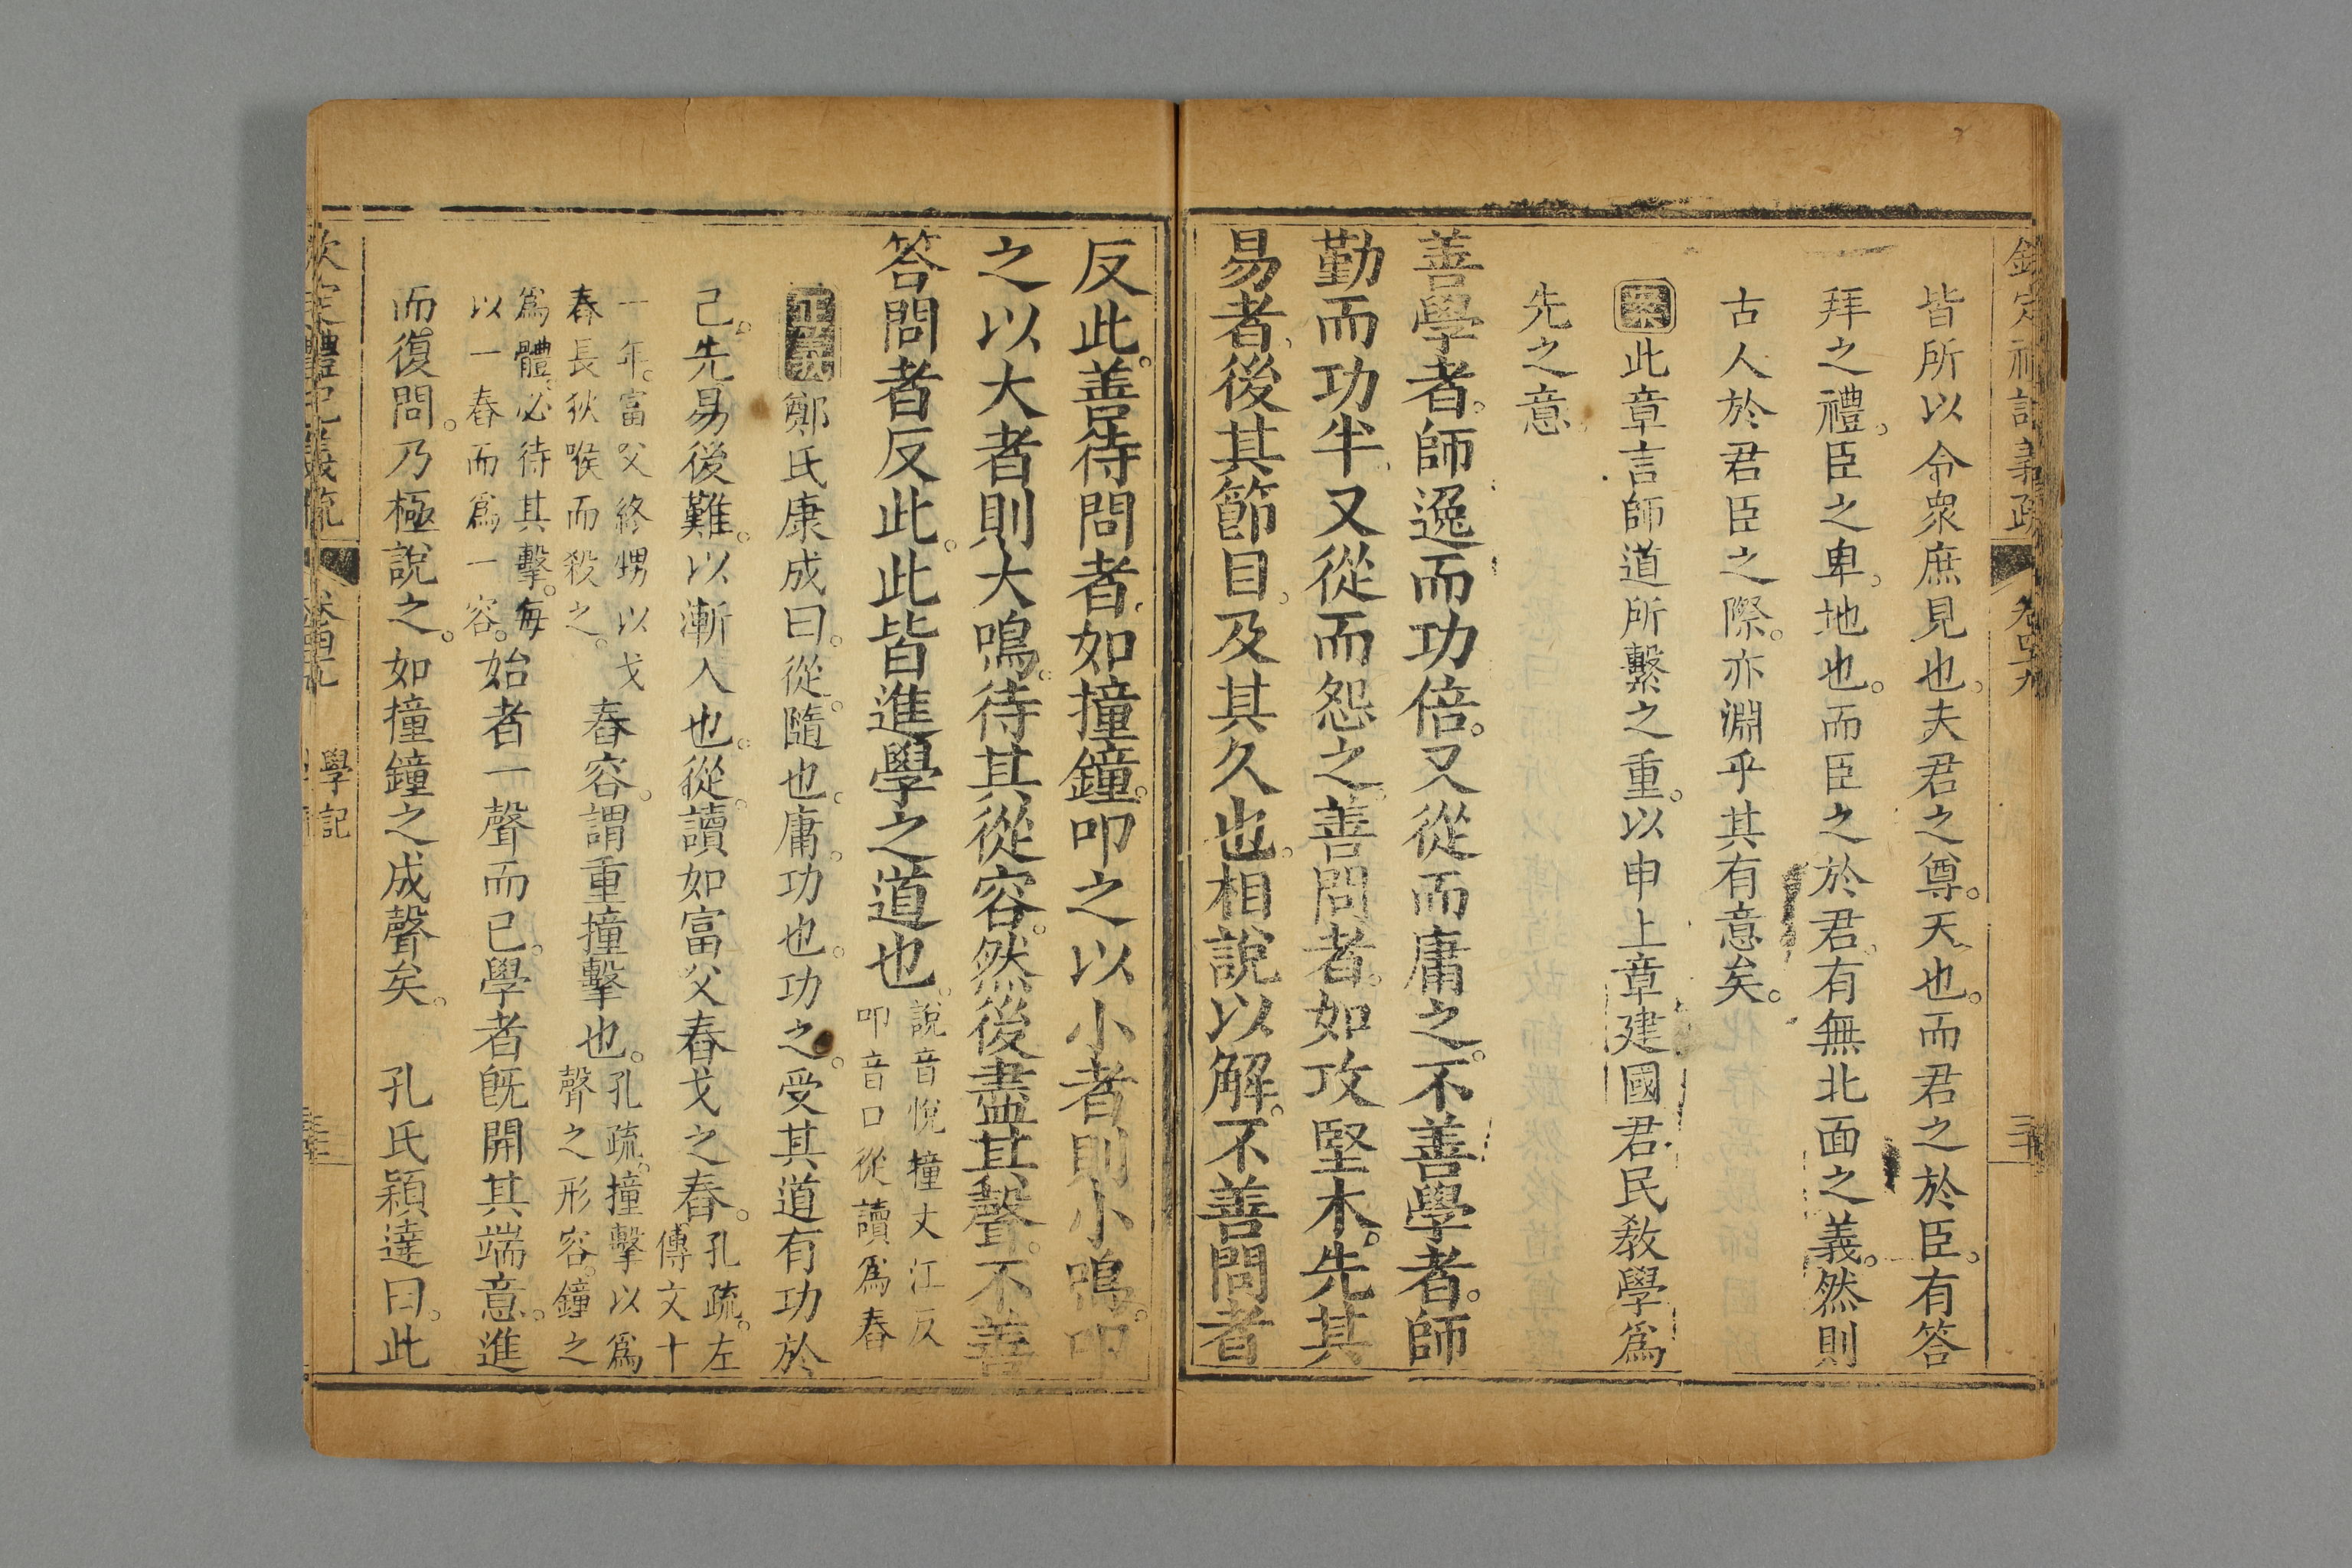 欽定禮記義疏 卷四十九 三十
皆所以令衆庶見也。夫君之尊。天也。而君之於臣。有答
拜之禮。臣之卑。地也。而臣之於君。有無北面之義。然則
古人於君臣之際。亦淵乎其有意矣。
案此章言師道所繫之重。以申上章建國君民教學爲
先之意。
善學者。師逸而功倍。又從而庸之。不善學者。師
勤而功半。又從而怨之。善問者。如攻堅木。先其
易者。後其節目。及其久也。相說以解。不善問者
反此。善待問者。如撞鐘。叩之以小者則小鳴。叩
之以大者則大鳴。待其從容。然後盡其聲。不善
答問者反此。此皆進學之道也。說音悅撞丈江反
叩音口從讀爲舂
正義鄭氏康成曰。從。隨也。庸。功也。功之。受其道有功於
己。先易後難。以漸入也。從。讀如富父舂戈之舂。孔疏。左
傳文十
一年。富父終甥以戈
舂長狄喉而殺之。
舂容。謂重撞擊也。孔疏。撞擊以爲
聲之形容。鐘之
爲體。必待其擊。每
以一舂而爲一容。
始者一聲而已。學者旣開其端意。進
而復問。乃極說之。如撞鐘之成聲矣。 孔氏穎達曰。此
欽定禮記義疏 卷四十九 學記